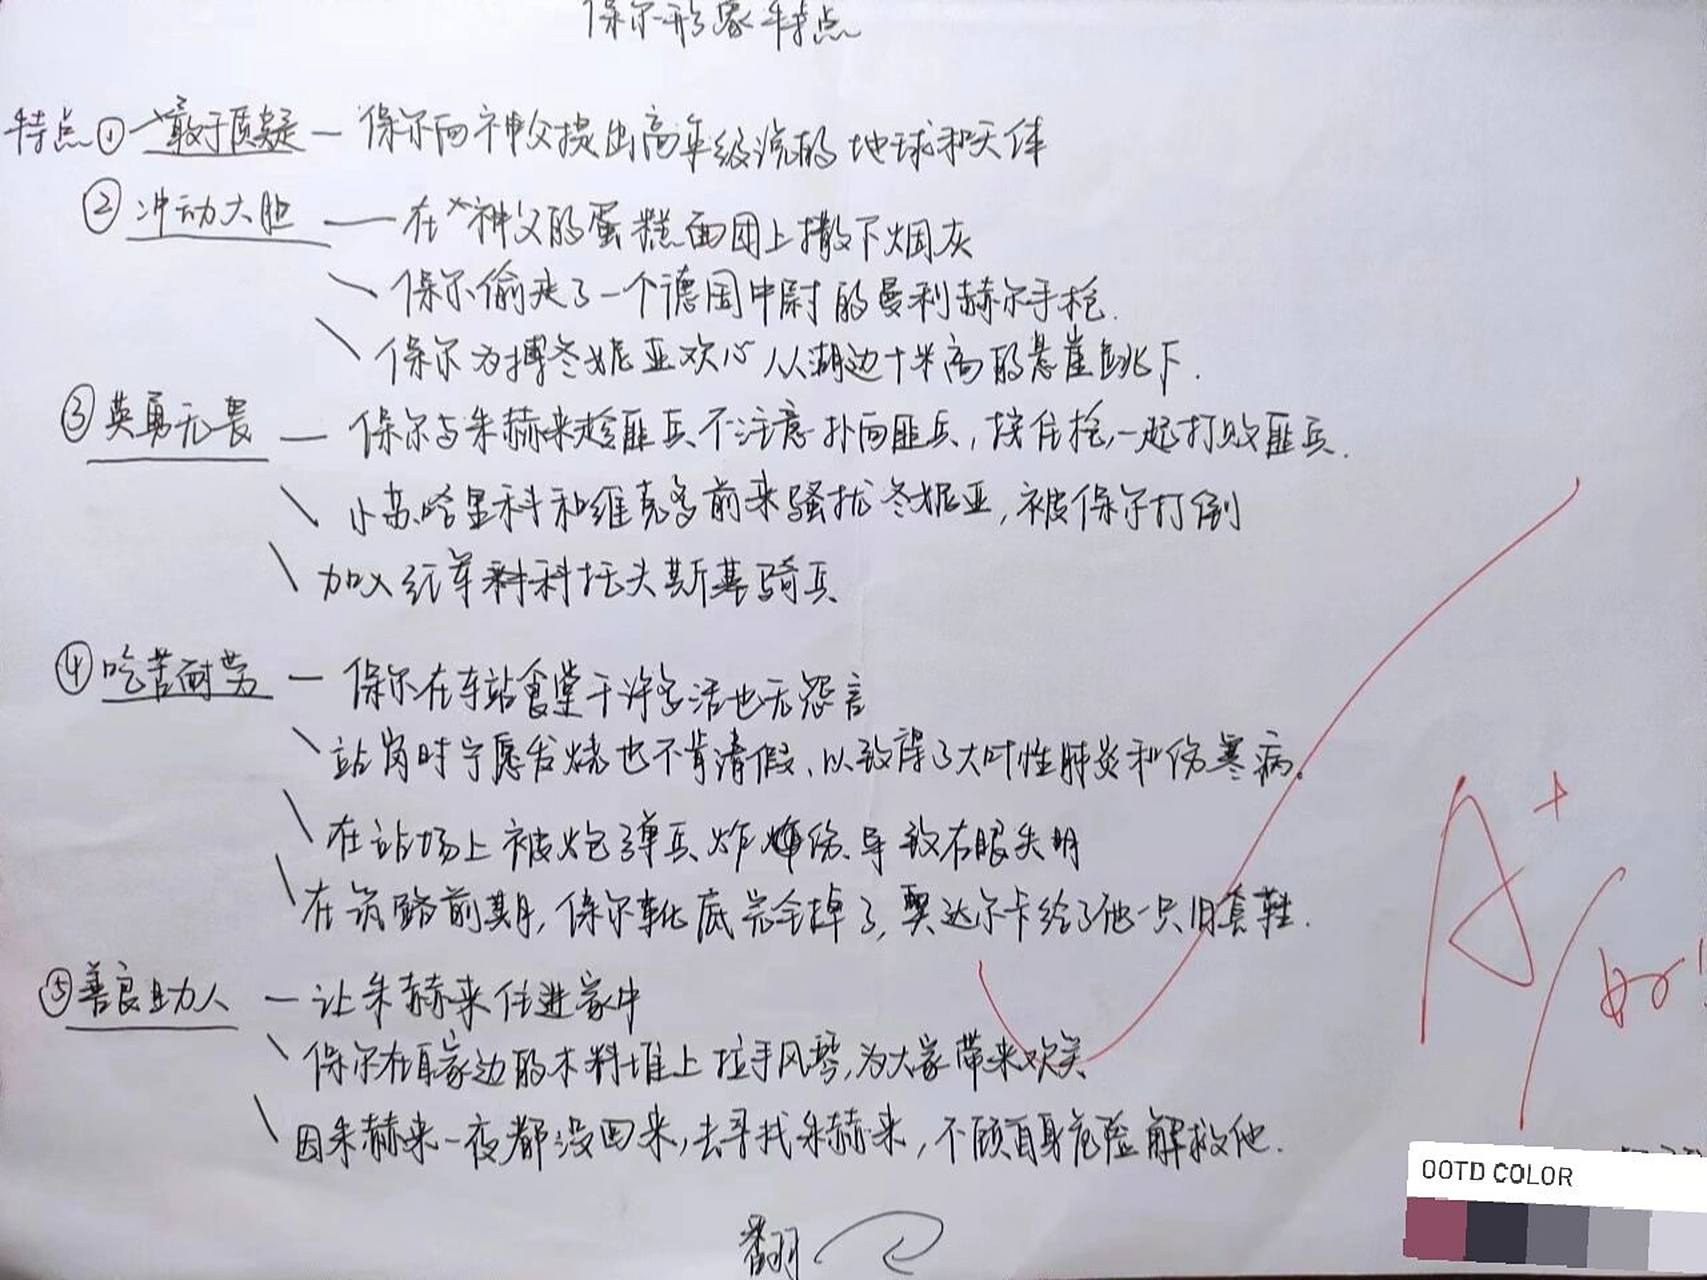 保尔形象特点
特点①敢于质疑 — 保尔向神父提出高年级说的地球和天体
②冲动大胆 — 在神父的蛋糕面团上撒下烟灰
保尔偷来了一个德国中尉的曼利赫尔手枪.
保尔为搏冬妮亚欢心从湖边十米高的悬崖跳下.
③英勇无畏 — 保尔与朱赫来趁匪兵不注意扑向匪兵,按住枪,一起打败匪兵.
小苏哈里科和维克多前来骚扰冬妮亚,被保尔打倒
加入红军科托夫斯基骑兵
④吃苦耐劳 — 保尔在车站食堂干许多活也无怨言
站岗时宁愿发烧也不肯请假、以致得了大叶性肺炎和伤寒病。
在站场上被炮弹兵炸伤、导致右眼失明
在筑路前期,保尔靴底完全掉了,奥达尔卡给了他一只旧套鞋.
⑤善良助人 — 让朱赫来住进家中
保尔在自家边的木料堆上拉手风琴,为大家带来欢笑
因朱赫来一夜都没回来,去寻找朱赫来,不顾自身危险解救他.
翻
A+
好!
OOTD COLOR